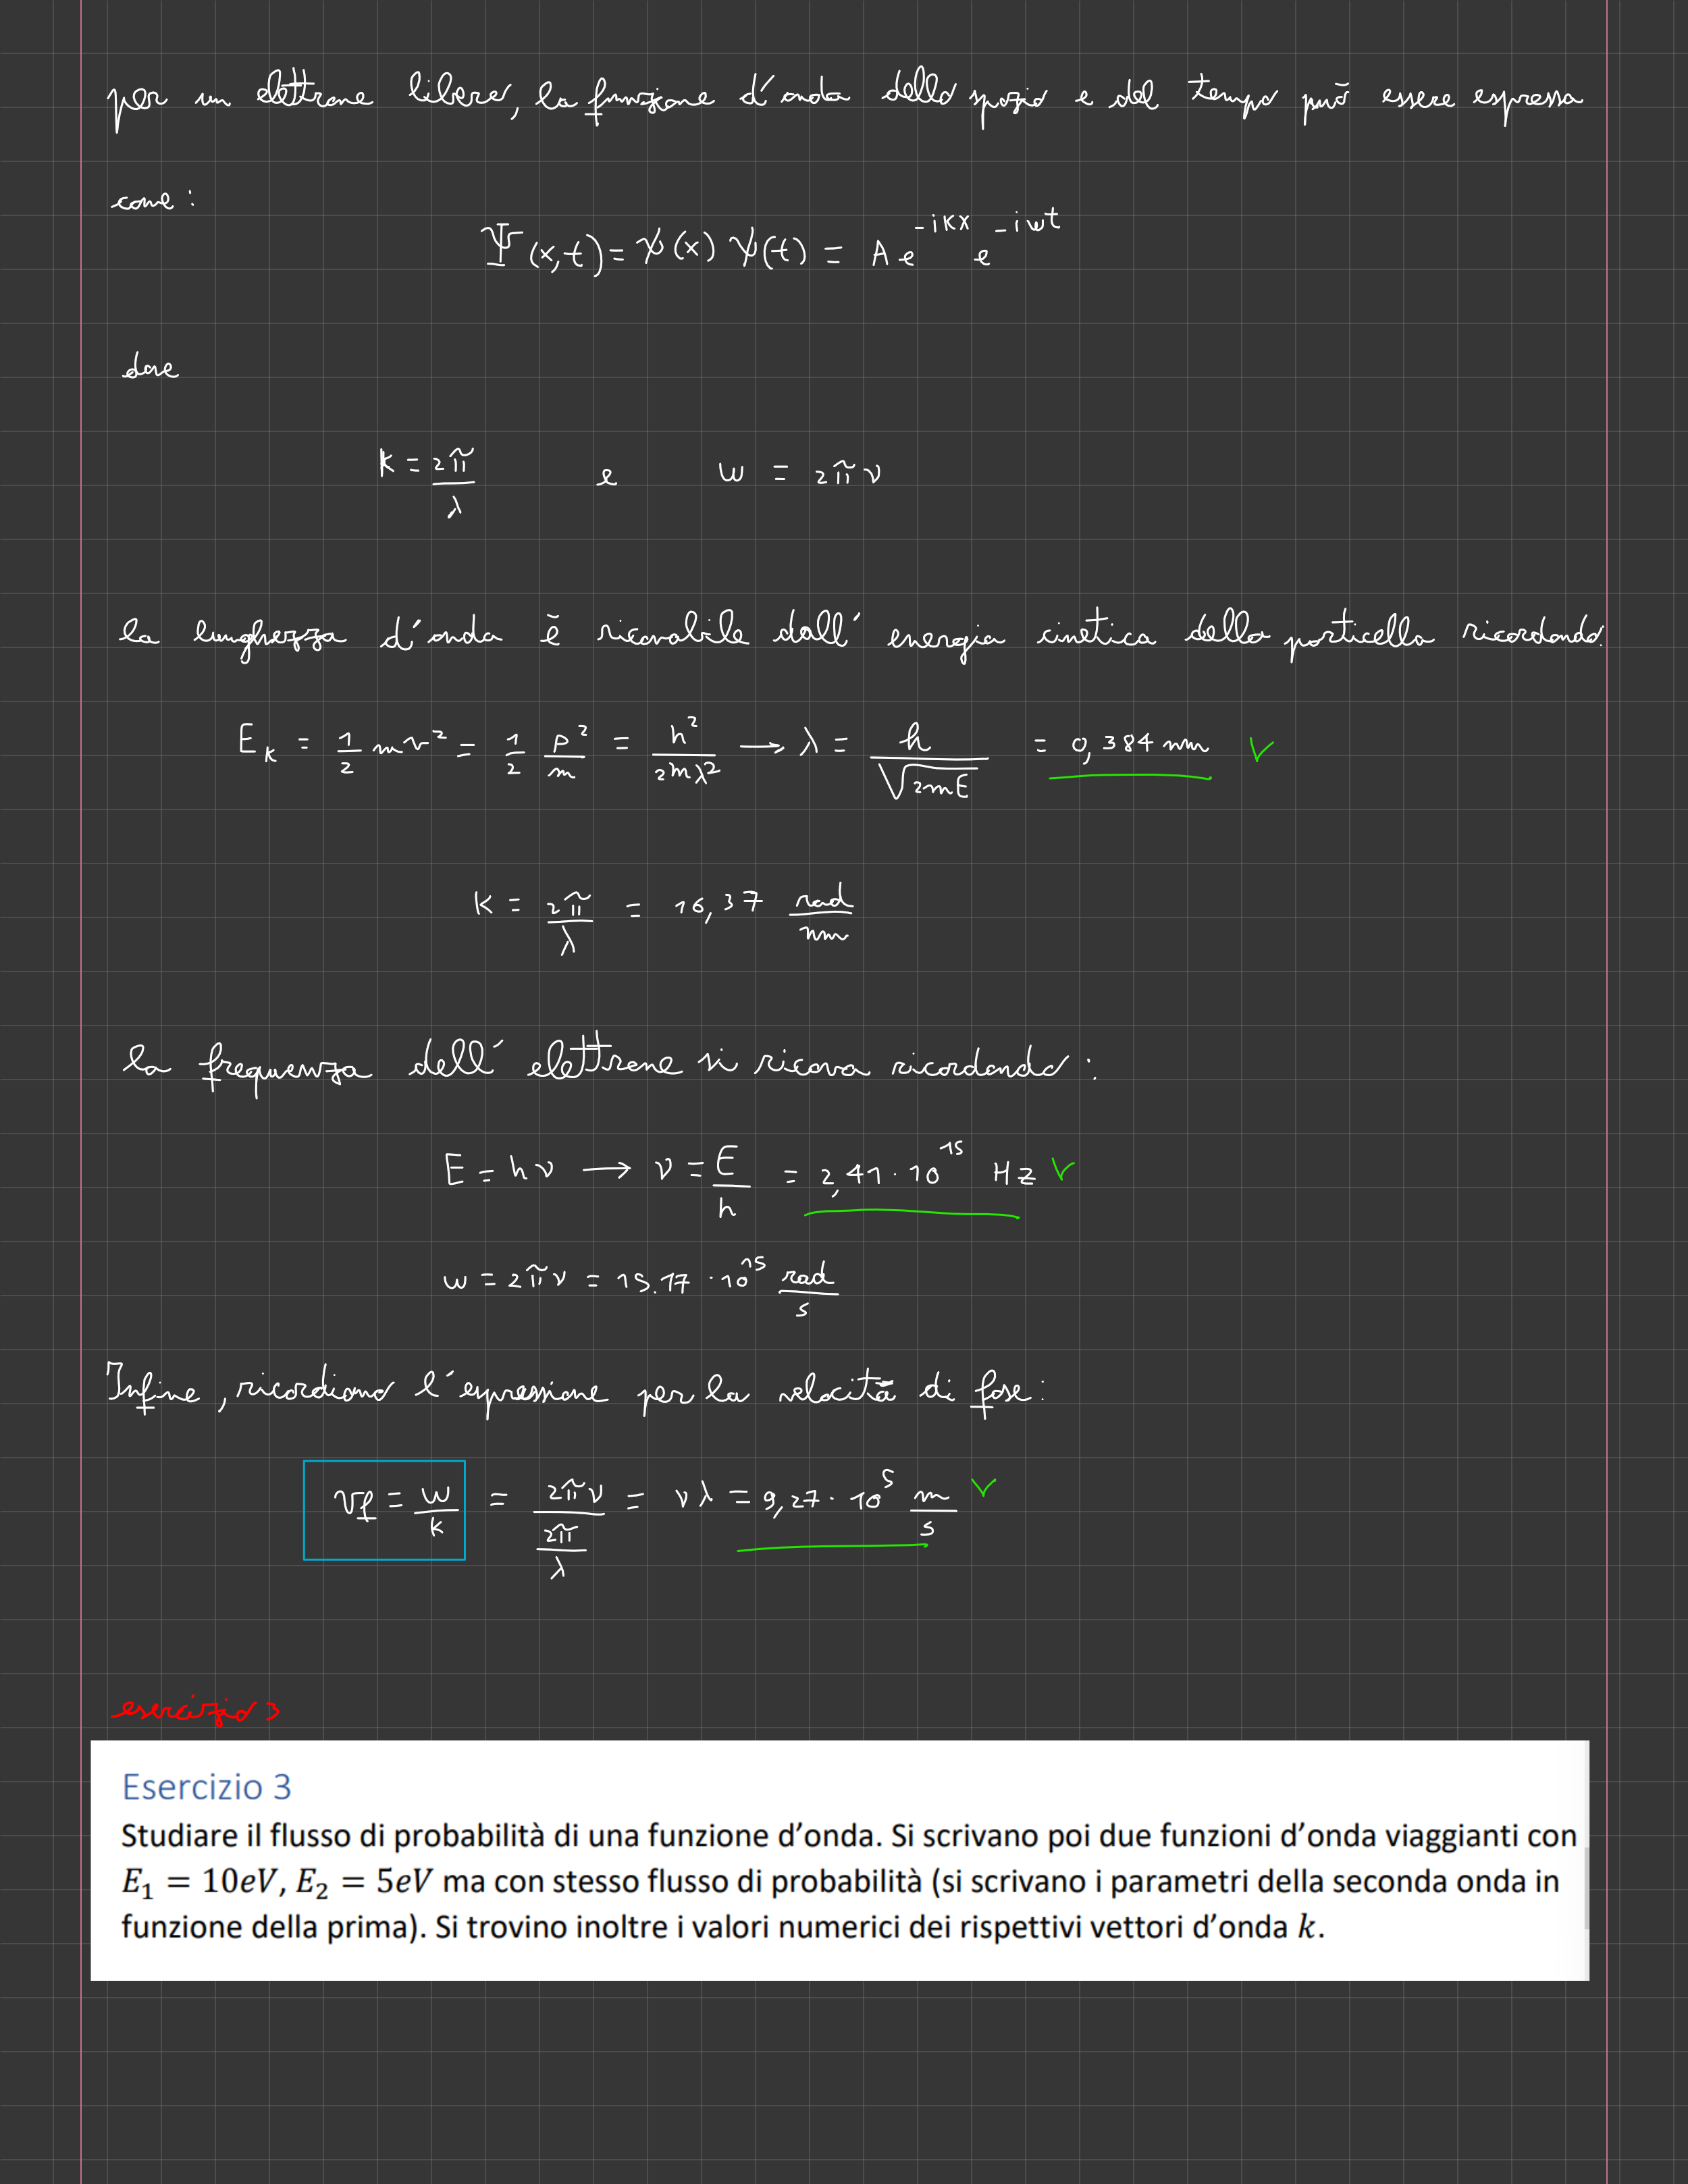 per un elettrone libero, la funzione d'onda dello spazio e del tempo può essere espressa
come:
Ψ(x,t) = ψ(x) ψ(t) = A e^{-ikx} e^{-iωt}
dove
K = 2π/λ e ω = 2πν
la lunghezza d'onda è ricavabile dall'energia cinetica della particella ricordando:
E_K = 1/2 mv² = 1/2 p²/m = h²/2mλ² → λ = h/√2mE = 0,384 nm ✓
K = 2π/λ = 16,37 rad/nm
la frequenza dell'elettrone si ricava ricordando:
E = hν → ν = E/h = 2,41·10^15 Hz ✓
ω = 2πν = 15.17·10^15 rad/s
Infine, ricordiamo l'espressione per la velocità di fase:
vf = ω/k = 2πν/(2π/λ) = νλ = 9,27·10^5 m/s ✓
esercizio 3
Esercizio 3
Studiare il flusso di probabilità di una funzione d'onda. Si scrivano poi due funzioni d'onda viaggianti con
E₁ = 10eV, E₂ = 5eV ma con stesso flusso di probabilità (si scrivano i parametri della seconda onda in
funzione della prima). Si trovino inoltre i valori numerici dei rispettivi vettori d'onda k.